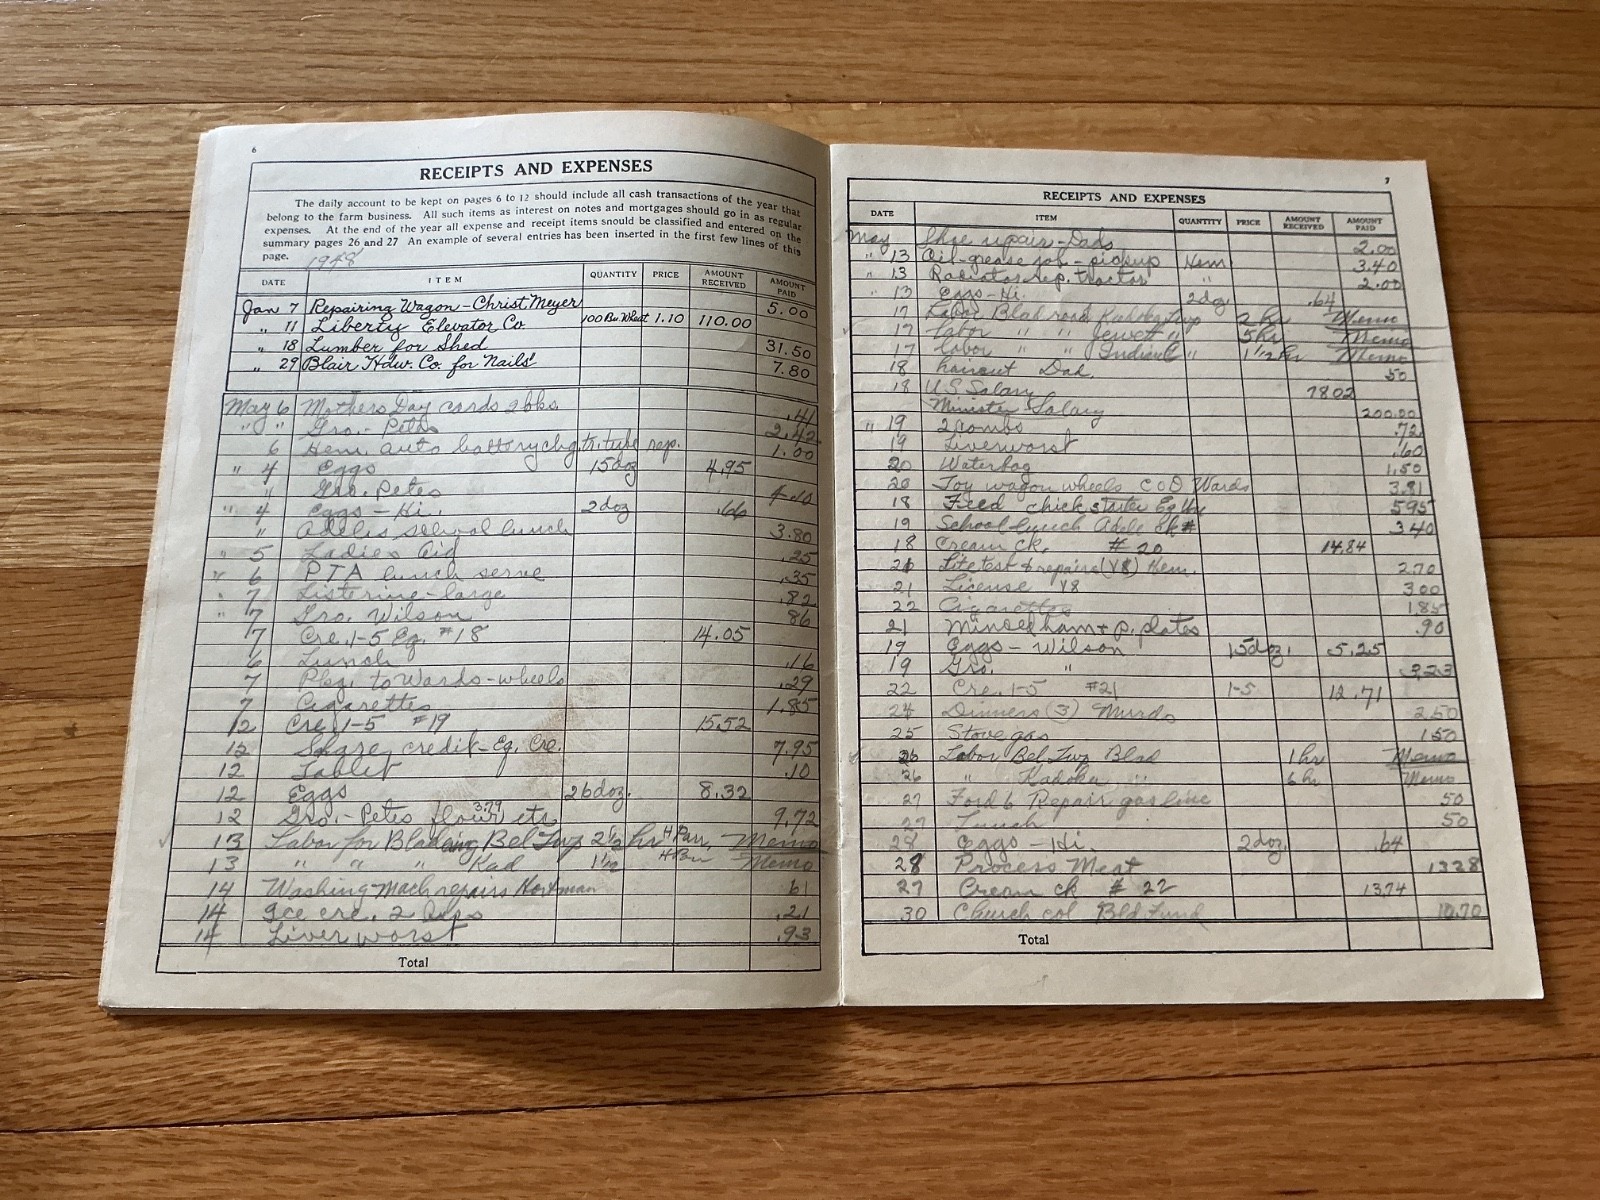 6
RECEIPTS AND EXPENSES
The daily account to be kept on pages 6 to 12 should include all cash transactions of the year that
belong to the farm business. All such items as interest on notes and mortgages should go in as regular
expenses. At the end of the year all expense and receipt items should be classified and entered on the
summary pages 26 and 27 An example of several entries has been inserted in the first few lines of this
page. 1948
DATE ITEM QUANTITY PRICE AMOUNT RECEIVED AMOUNT PAID
Jan 7 Repairing Wagon - Christ Meyer 5.00
" 11 Liberty Elevator Co 100 Bu. Wheat 1.10 110.00
" 18 Lumber for Shed 31.50
" 29 Blair Hdw. Co. for Nails 7.80
May 6 Mothers Day cards 2 bks. .41
" " Gro. - Petes 2.42
6 Hem. auto battery chg. tr. tube rep. 1.00
" 4 Eggs 15 doz 4.95
4 Gro. Petes
" 4 Eggs - Hi. 2 doz .66
" Adeles school lunch 3.80
" 5 Ladies Aid .25
" 6 PTA lunch serve .35
" 7 Listerine - large .82
" 7 Gro. Wilson 86
7 Cre. 1-5 Eq. #18 14.05
6 Lunch .16
7 Pkg. to Wards - wheels .29
7 Cigarettes 1.85
12 Cre. 1-5 #19 15.52
12 Share credit - Eq. Cre. 7.95
12 Tablet .10
12 Eggs 26 doz. 8.32
12 Gro. - Petes flour 3.79 etc 9.72
13 Labor for Blading Bel Twp 2 1/2 hr Memo
13 " " " Kad 1 1/2 Memo
14 Washing Mach repairs 61
14 Ice cre. 2 .21
14 Liverworst .93
Total
7
RECEIPTS AND EXPENSES
DATE ITEM QUANTITY PRICE AMOUNT RECEIVED AMOUNT PAID
May Shoe repair - Dads 2.00
" 13 Oil-grease job - pickup Hem 3.40
" 13 Radiator rep. tractor " 2.00
" 13 Eggs - Hi. 2 doz .64
17 Labor Blad road Kadoka Twp 2 hr Memo
17 labor " " Jewett " 5 hr Memo
17 labor " " " 1 1/2 hr Memo
18 haircut Dad. 50
18 U.S. Salary 7802
Minister Salary 200.00
" 19 2 combs .72
19 Liverworst .60
20 Waterbag 1.50
20 Toy wagon wheels COD Wards 3.81
18 Feed chick starter Eq 595
19 School lunch Adele 340
18 Cream ck. #20 14.84
20 Lite test & repairs (V8) Hem. 270
21 License V8 300
22 Cigarettes 185
21 ham + p. plates .90
19 Eggs - Wilson 15 doz. 5.25
19 Gro. " 3.23
22 Cre. 1-5 #21 1-5 12.71
24 Dinners (3) Murdo 2.50
25 Stove gas 150
26 Labor Bel. Twp Blad 1 hr Memo
26 " Kadoka " 6 hr Memo
27 Ford 6 Repair gas line 50
27 Lunch 50
28 Eggs - Hi. 2 doz. .64
28 Process Meat 1328
27 Cream ck # 22 13.74
30 Church col Bld Fund 10.70
Total